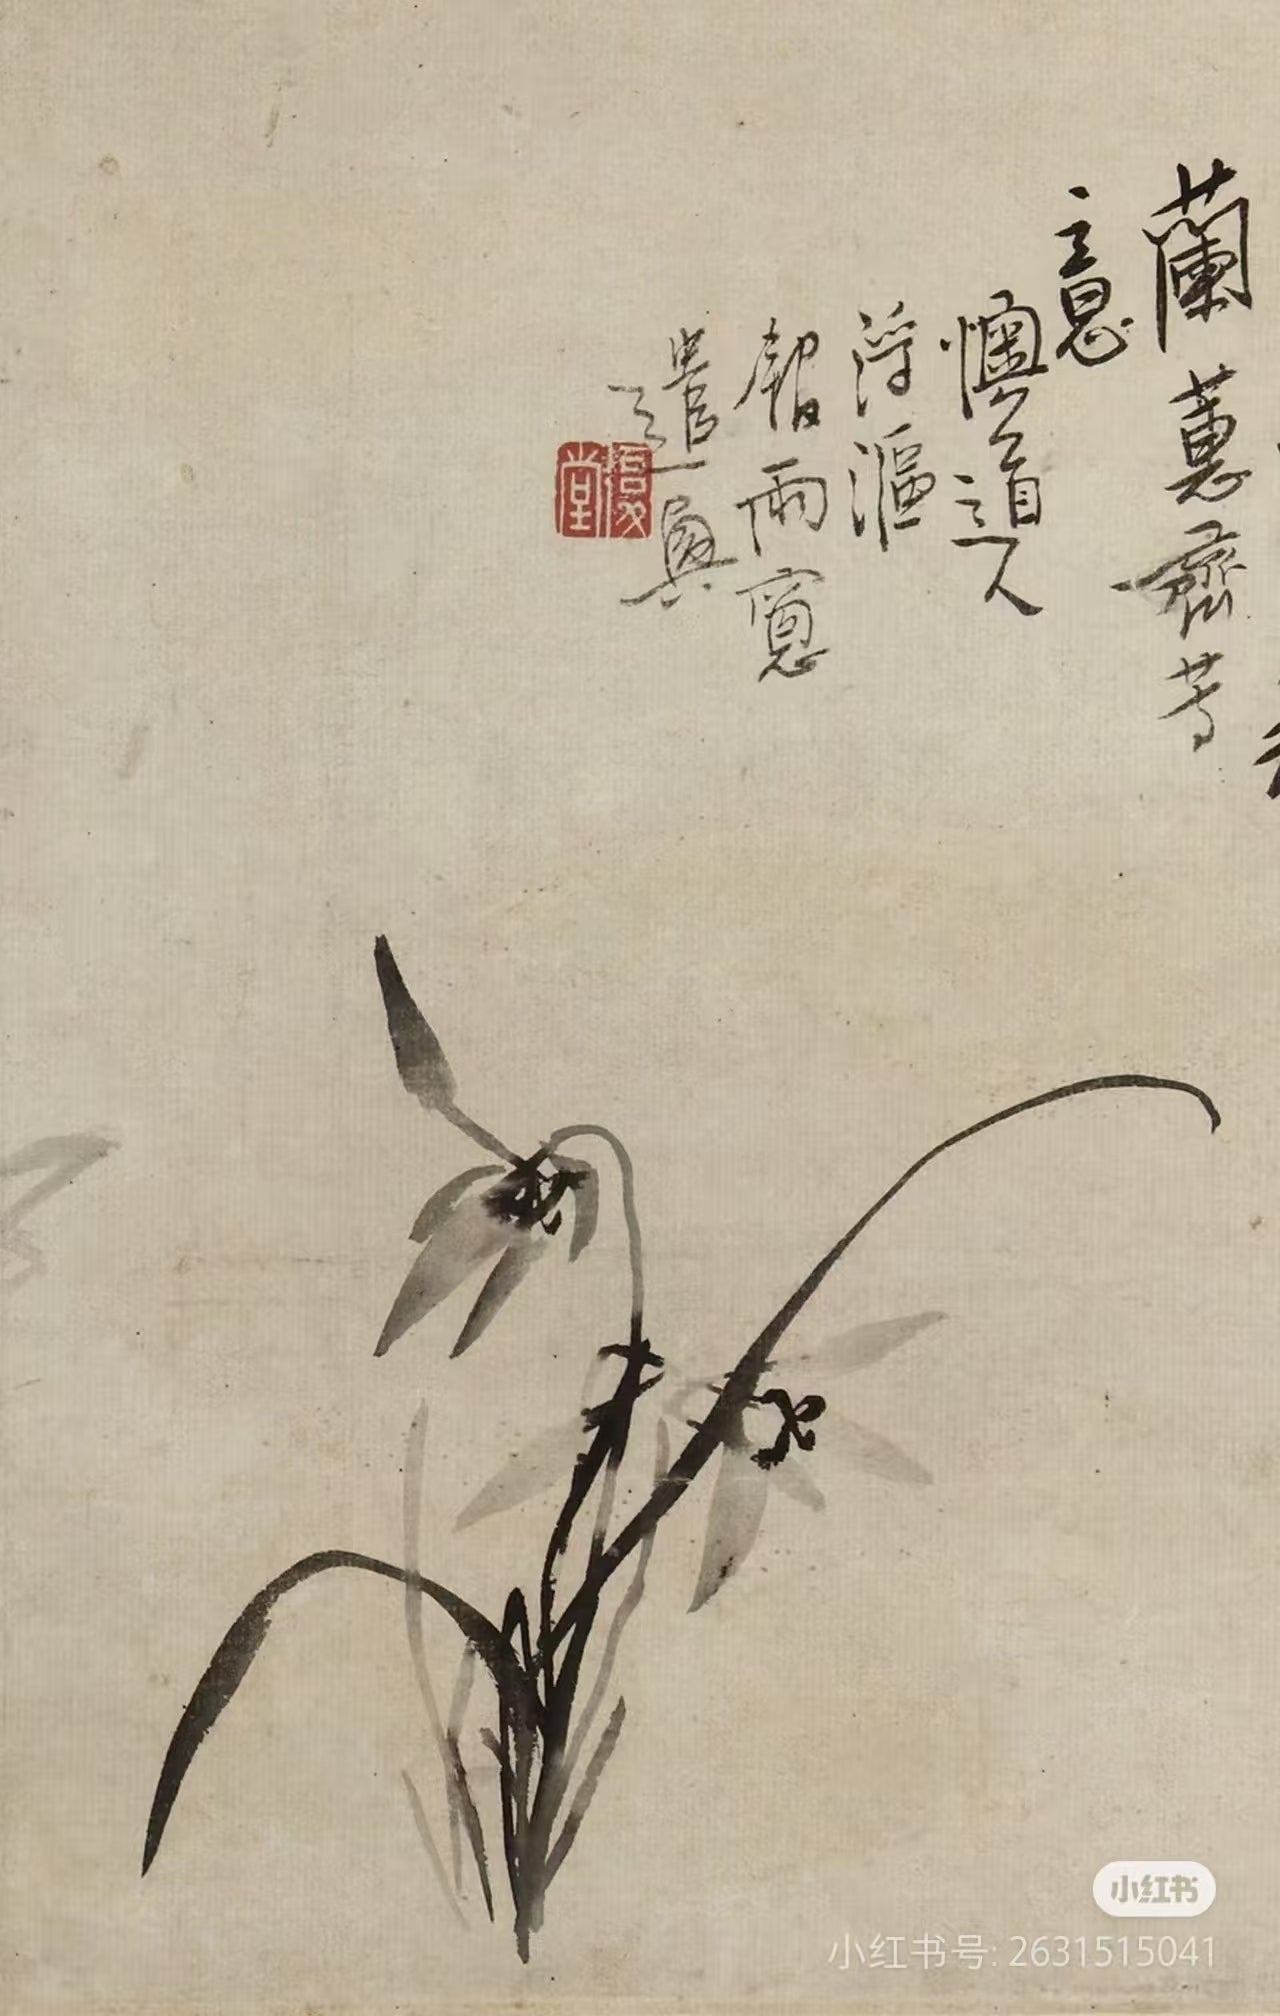 蘭蕙齊芳
意
懊道人
浮漚
館雨窻
遣興
復堂
小红书
小红书号: 2631515041